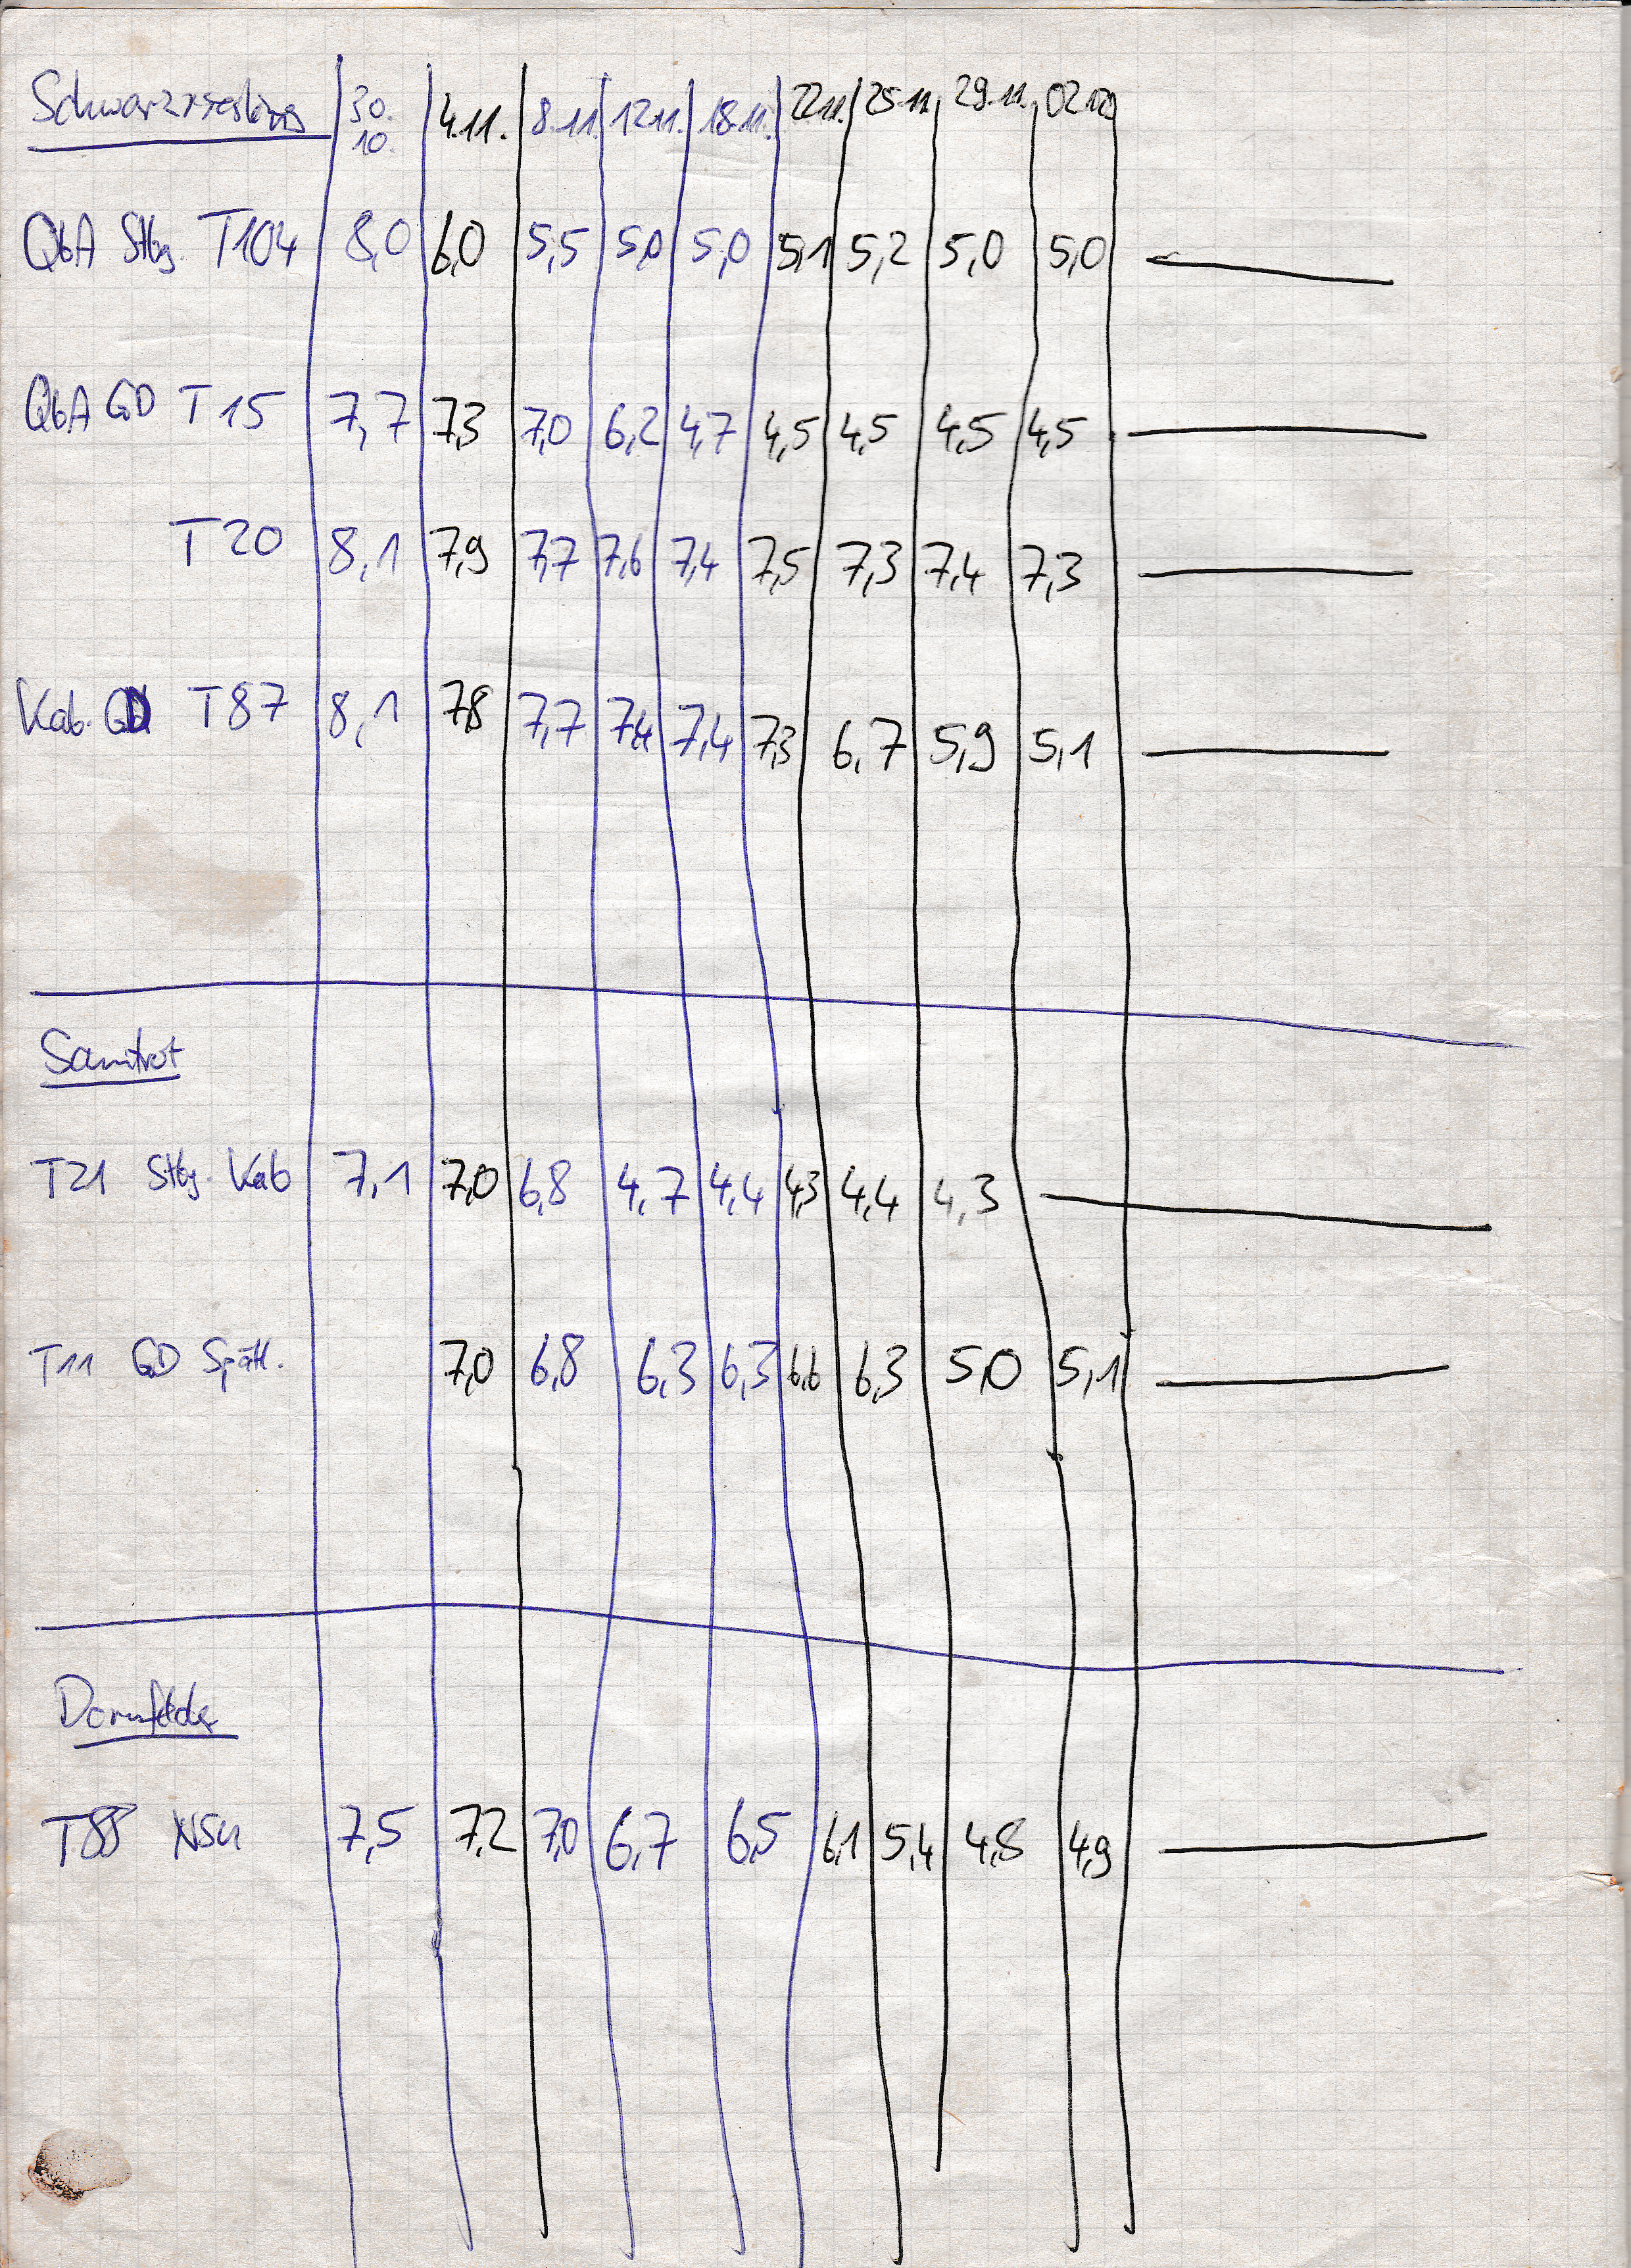 Schwarzriesling 30.10. 4.11. 8.11. 12.11. 18.11. 22.11. 25.11. 29.11. 02.12.
QbA Stbg. T104 8,0 6,0 5,5 5,0 5,0 5,1 5,2 5,0 5,0
QbA GD T15 7,7 7,3 7,0 6,2 4,7 4,5 4,5 4,5 4,5
T20 8,1 7,9 7,7 7,6 7,4 7,5 7,3 7,4 7,3
Kab. GD T87 8,1 7,8 7,7 7,4 7,4 7,3 6,7 5,9 5,1
Samtrot
T21 Stbg. Kab 7,1 7,0 6,8 4,7 4,4 4,3 4,4 4,3
T11 GD Spätl. 7,0 6,8 6,3 6,3 6,6 6,3 5,0 5,1
Dornfelder
7,5 7,2 7,0 6,7 6,5 6,1 5,4 4,8 4,9